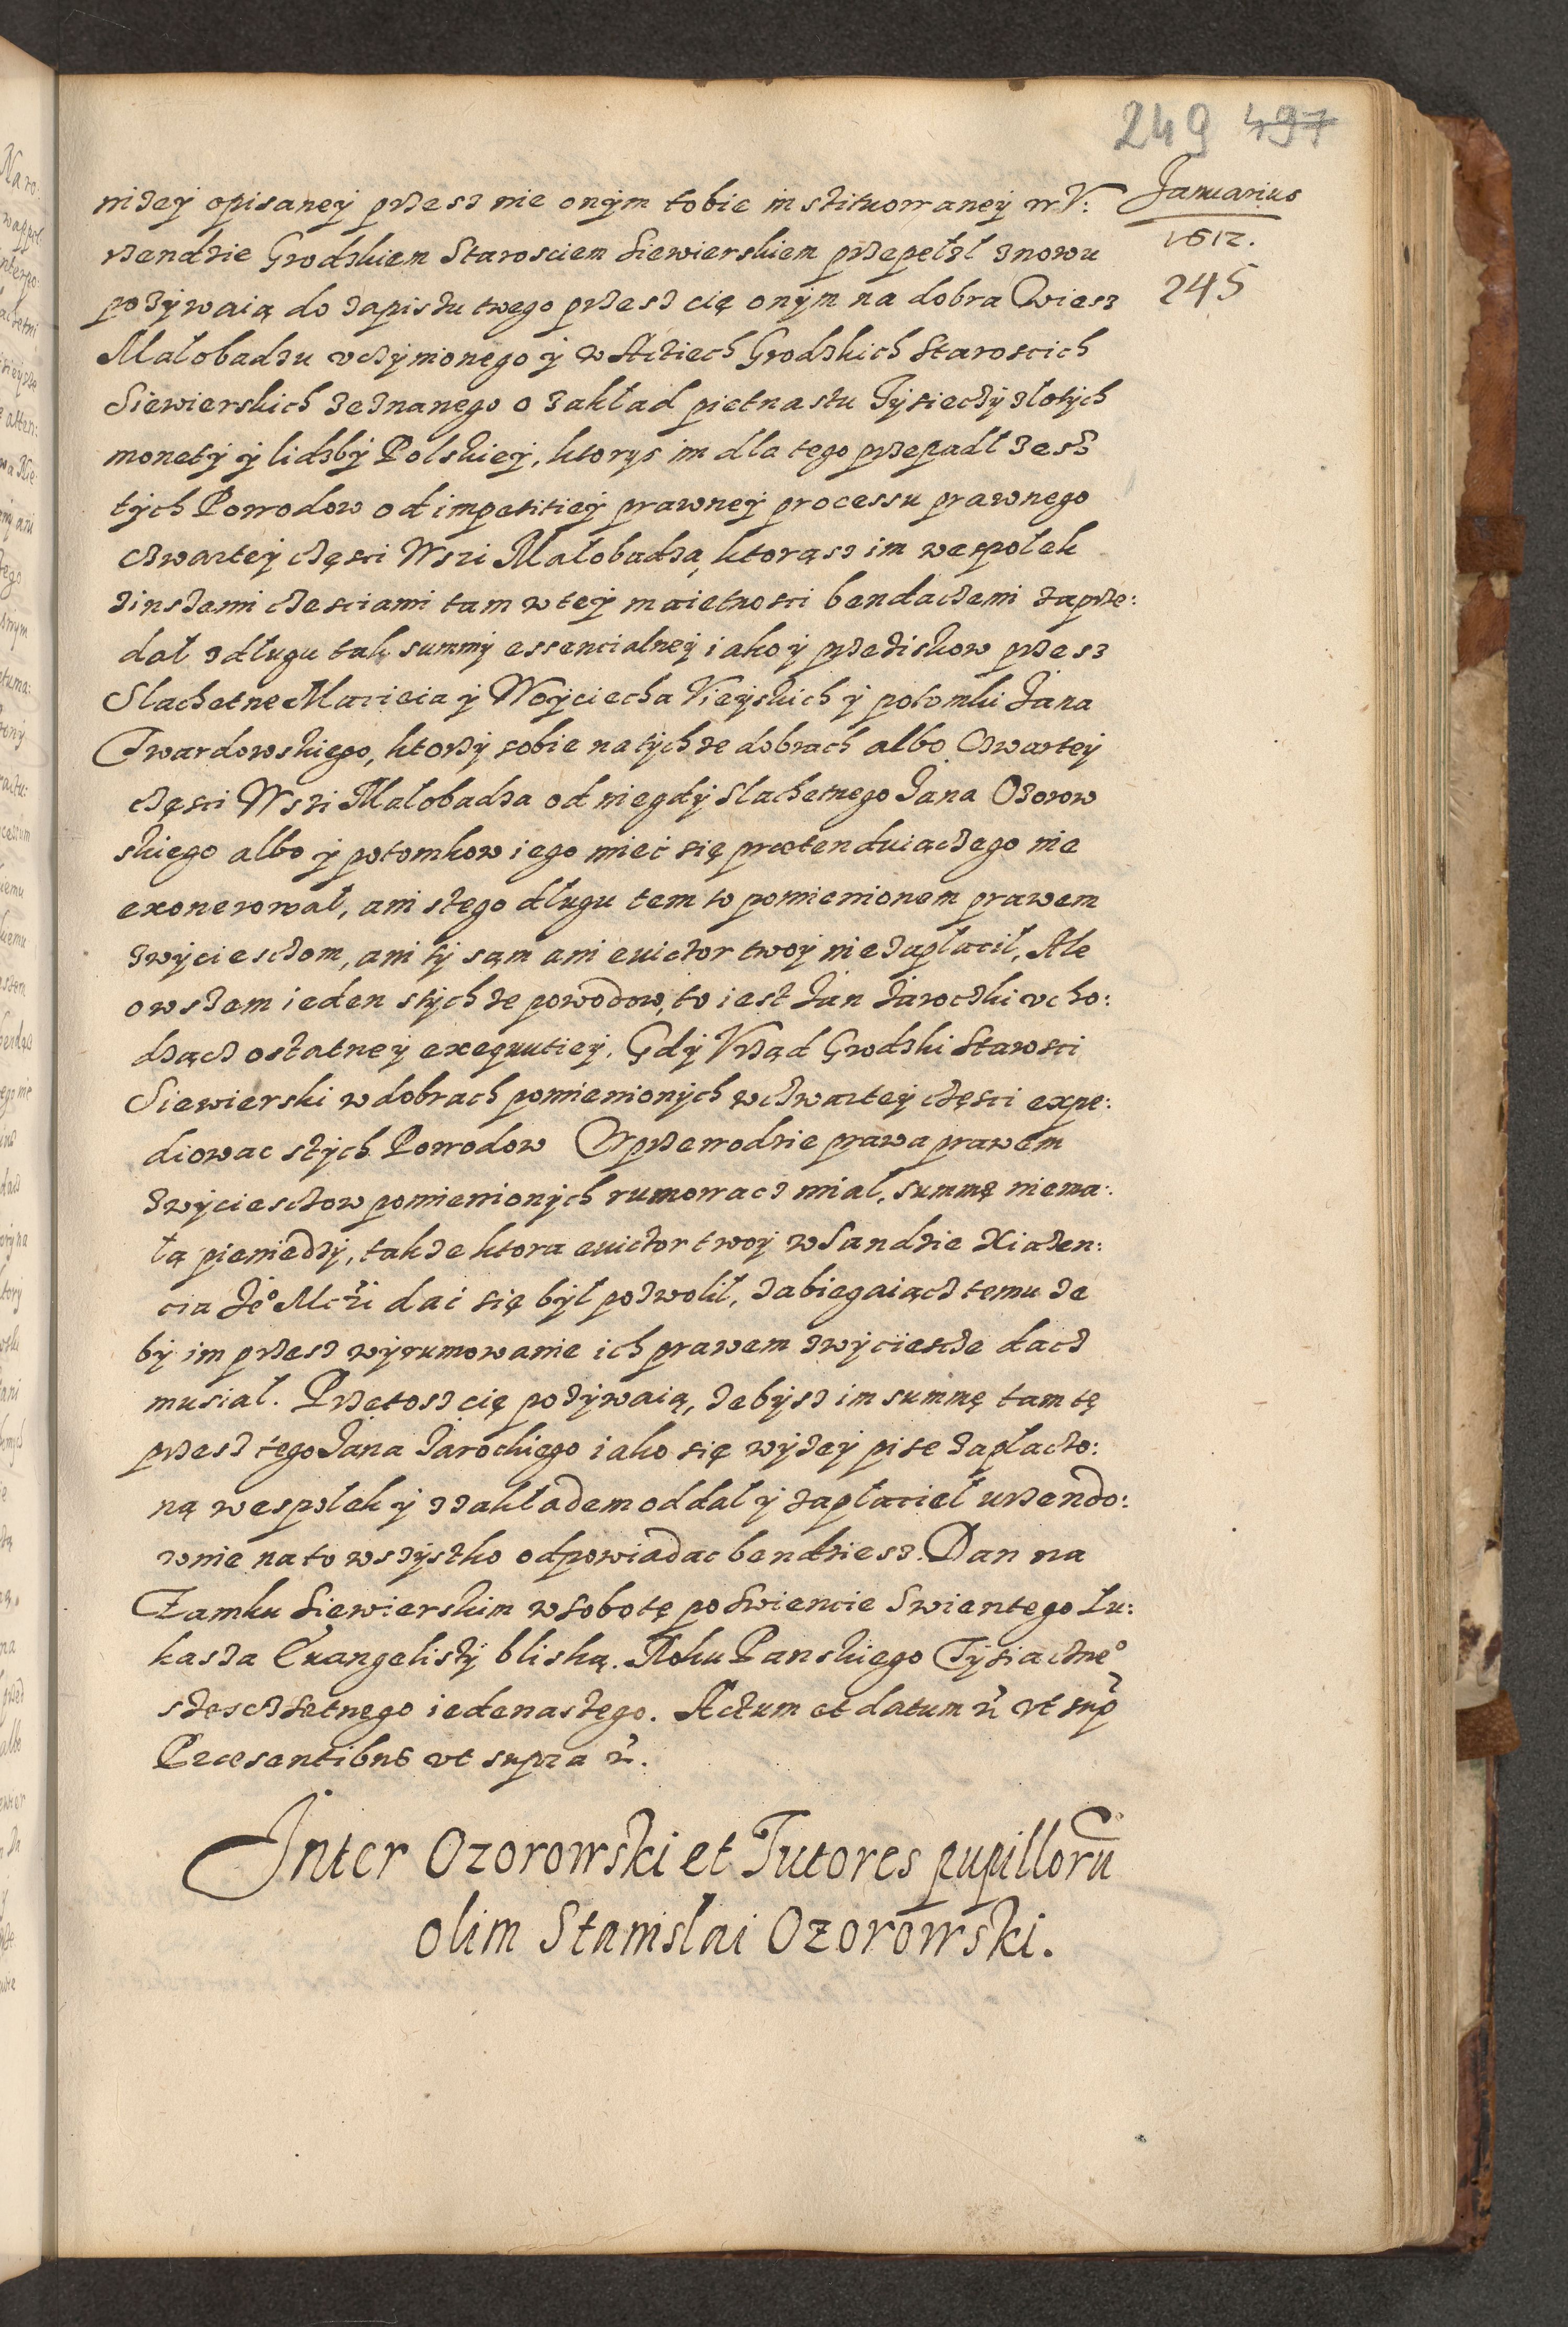 249 497
Januarius
1612.
245
nizey opisaney przesz nie onym tobie instituowaney w V:
rzendzie Grodzkiem Starosciem Siewierskiem przepełzl znowu
pozywaią do zapisu twego przesz cię onym na dobra Wiesz
Małobadzu vczynionego y w Acziech Grodzkich Staroscich
Siewierskich zeznanego o zakład pietnastu Tysieczy zlotych
monety y lidzby Polskiey, ktorys im dla tego przepadl zesz
tych Powodow od impetitiey prawney processu prawnego
czwartey częsci Wszi Małobadza, ktorąsz im wespolek
zinszemi czesciami tam w tey maietnosci bendaczemi zaprze:
dał z długu tak summy essencialney iako y przeziskow przesz
Slachetne Macieia y Woyciecha Vieyskich y potomki Jana
Twardowskiego, ktorzy sobie na tychze dobrach albo Czwartey
częsci Wszi Małobadza od niegdy Slachetnego Jana Ozorow
skiego albo y potomkow iego mieć się prætenduiączego nie
exonerował, ani stego długu tem to pomienionem prawem
zwyciesczom, ani ty sąm ani euictor twoy nie zapłacił, Ale
owszem ieden stychze powodow, to iest Jan Jaroczki vcho:
dząc ostatney exequutiey, Gdy Vrząd Grodzki Starosci
Siewierski w dobrach pomienionych w czwartey częsci expe:
diowac stych Powodow Wprzewodzie prawa prawem
zwyciesczow pomienionych rumowacz mial, summę niema:
łą pieniedzy, takze ktora euictor twoy w Sandzie Xiazen:
cia Je° Mczi dać się był pozwolił, zabiegaiącz temu ze
by im przesz wyrumowanie ich prawem zwyciescze dacz
musial. Przetosz cię pozywaią, zebysz im summę tam tę
przesz tego Jana Jarockiego iako się wyzey pise zapłaczo:
ną wespolek y zzakładem oddał y zapłacieł urzendo:
wnie na to wszystko odpowiadac bendziesz. Dan na
Zamku Siewierskim w sobotę po Swiencie Swientego Lu:
kasza Ewangelisty bliską. Roku Panskiego Tysiaczne°
szescz setnego iedenastego. Actum et datum ut sup
Præsentibus vt supra.
Inter Ozorowski et Tutores pupilloru
olim Stanislai Ozorowski.